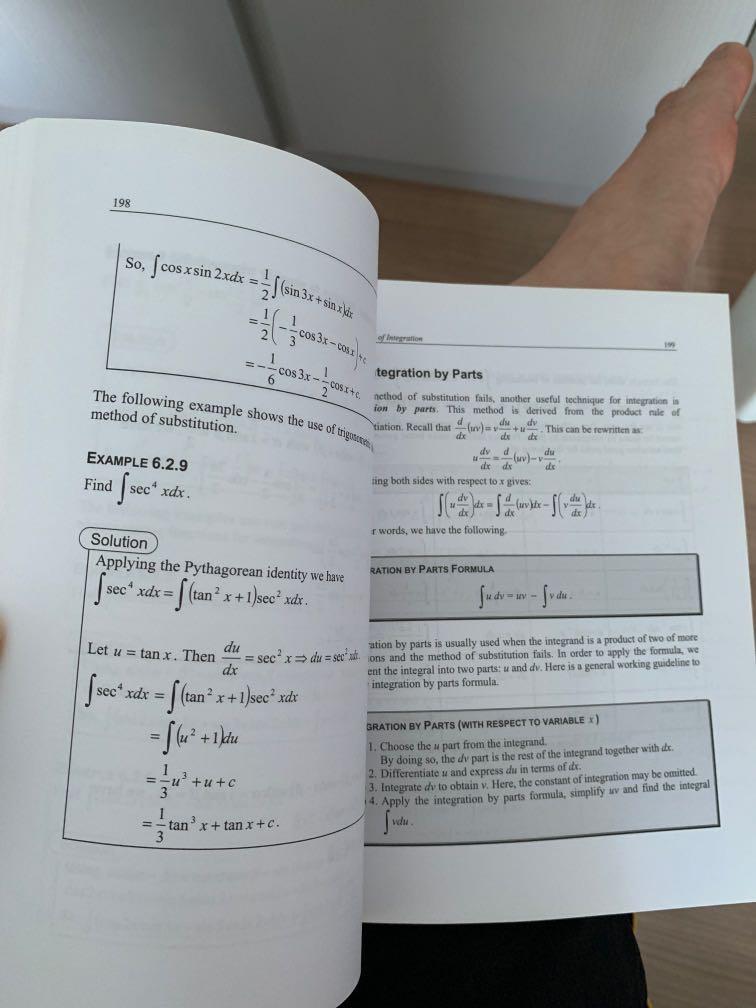 198
So, ∫cos x sin 2xdx = 1/2 ∫(sin 3x + sin x)dx
= 1/2 (−1/3 cos 3x − cos x) + c
= −1/6 cos 3x − 1/2 cos x + c.
The following example shows the use of
method of substitution.
EXAMPLE 6.2.9
Find ∫sec⁴ xdx.
Solution
Applying the Pythagorean identity we have
∫sec⁴ xdx = ∫(tan² x + 1)sec² xdx.
Let u = tan x. Then du/dx = sec² x ⇒ du = sec² xdx.
∫sec⁴ xdx = ∫(tan² x + 1)sec² xdx
= ∫(u² + 1)du
= 1/3 u³ + u + c
= 1/3 tan³ x + tan x + c.
of Integration 199
tegration by Parts
method of substitution fails, another useful technique for integration is
ion by parts. This method is derived from the product rule of
tiation. Recall that d/dx (uv) = v du/dx + u dv/dx. This can be rewritten as:
u dv/dx = d/dx (uv) − v du/dx.
ting both sides with respect to x gives:
∫(u dv/dx)dx = ∫ d/dx (uv)dx − ∫(v du/dx)dx.
r words, we have the following.
RATION BY PARTS FORMULA
∫u dv = uv − ∫v du.
ation by parts is usually used when the integrand is a product of two of more
ons and the method of substitution fails. In order to apply the formula, we
ent the integral into two parts: u and dv. Here is a general working guideline to
integration by parts formula.
GRATION BY PARTS (WITH RESPECT TO VARIABLE x)
1. Choose the u part from the integrand.
By doing so, the dv part is the rest of the integrand together with dx.
2. Differentiate u and express du in terms of dx.
3. Integrate dv to obtain v. Here, the constant of integration may be omitted.
4. Apply the integration by parts formula, simplify uv and find the integral
∫vdu.